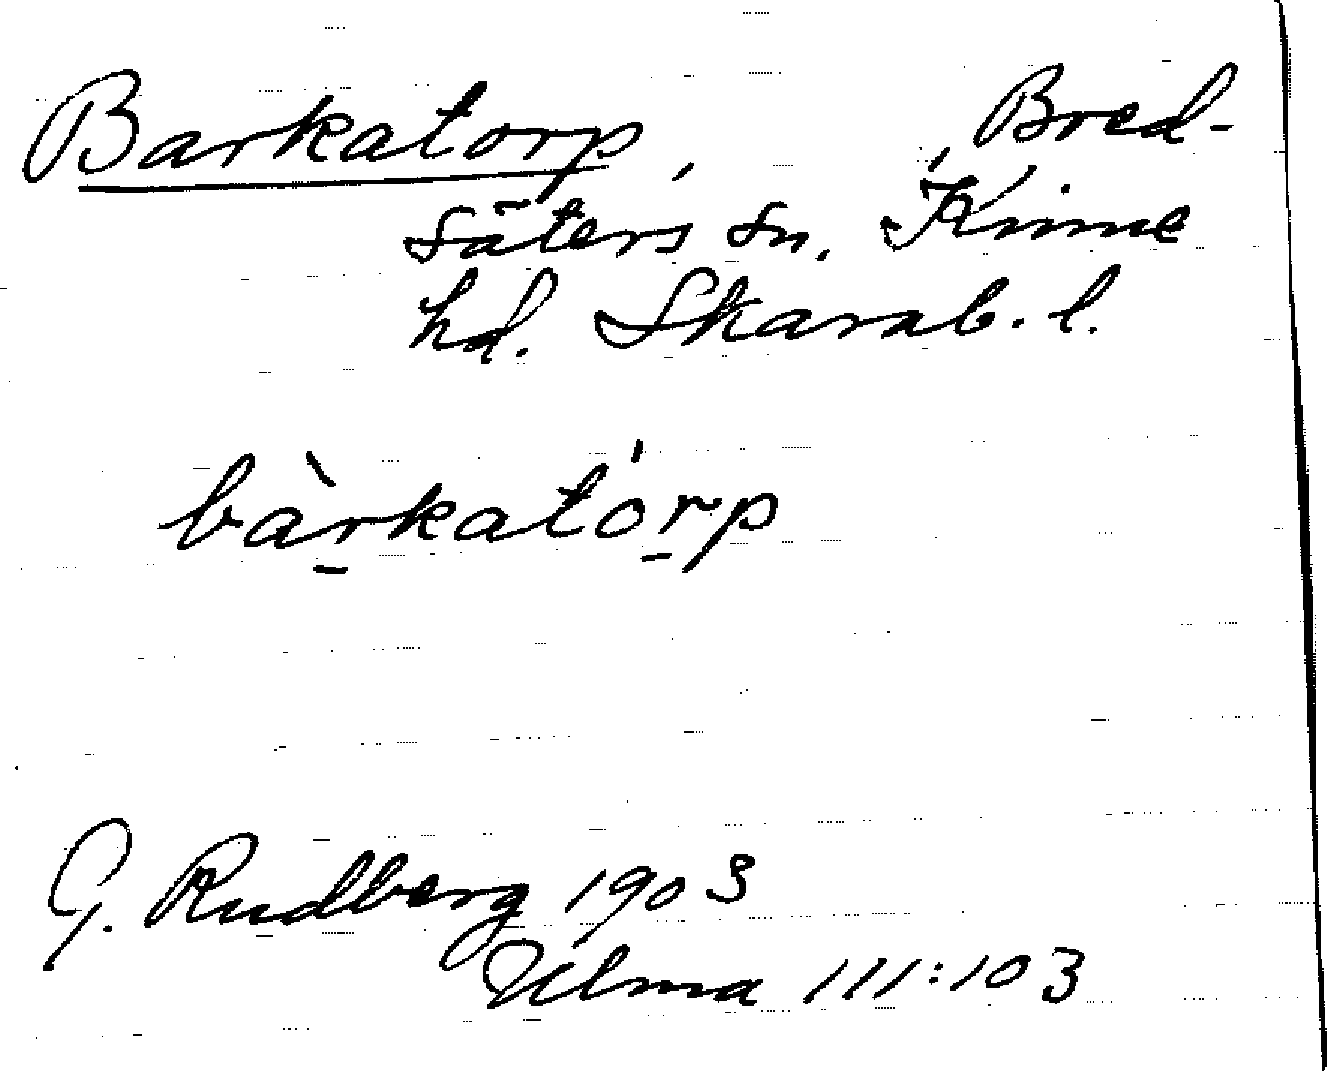 Barkatorp, Bred-
säters sn. Kinne
hd. Skarab. l.
bàrkatórp
G. Rudberg 1903
Ulma 111:103